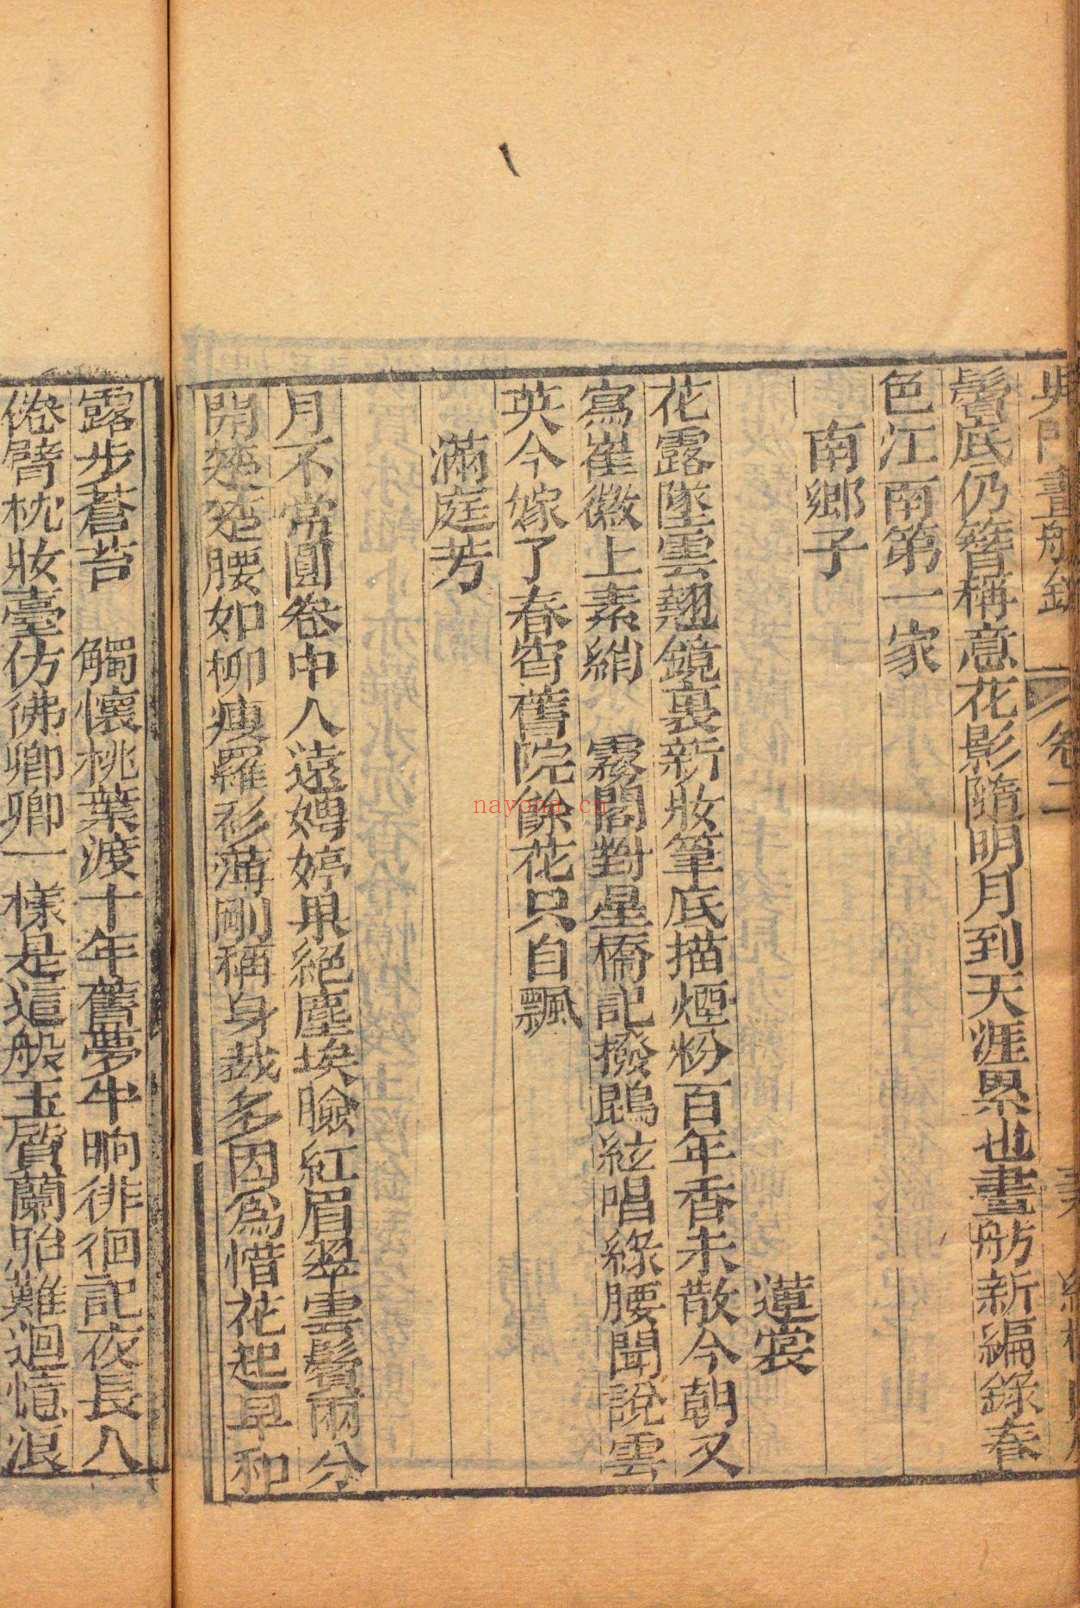 吳門畫舫錄 卷二
鬢底仍簪稱意花影隨明月到天涯累也畫舫新編錄春
色江南第一家
南鄉子
蓮裳
花露墜雲翹鏡裏新妝筆底描煙粉百年香未散今朝又
寫崔徽上素綃 霧閣對星橋記撥鵾絃唱綠腰聞說雲
英今嫁了春宵舊院餘花只自飄
滿庭芳
月不常圓卷中人遠娉婷果絕塵埃臉紅眉翠雲鬢兩分
開 腰如柳瘦羅衫薄剛稱身裁多因爲惜花起早和
露步蒼苔 觸懷桃葉渡十年舊夢半晌徘徊記夜長人
倦臂枕妝臺仿彿卿卿一樣是這般玉質蘭胎難迴憶浪
nayona.cn